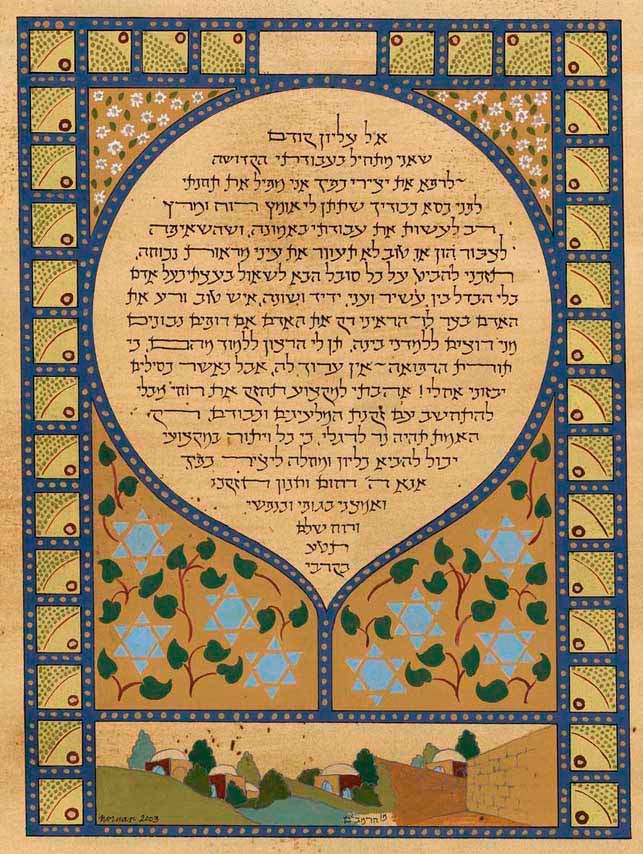 אל עליון קודם
שאני מתחיל בעבודתי הקדושה
לרפא את יצירי כפיך אני מפיל את תחנתי
לפני כסא כבודיך שתתן לי אומץ רוח ומרץ
רב לעשות את עבודתי באמונה, ושהשאיפה
לצבור הון או טוב לא תעוור את עיני מראות נכוחה,
תזכני להביט על כל סובל הבא לשאול בעצתי כעל אדם
בלי הבדל בין עשיר ועני, ידיד ושונה, איש טוב ורע את
האדם בצר לו הראיני רק את האדם אם רופאים נבונים
מני רוצים ללמדני בינה, תן לי הרצון ללמוד מהם כי
תורת הרפואה אין ערוך לה, אבל כאשר כסילים
יבזוני אחלי! אהבתי למקצוע תחזק את רוחי מבלי
להתחשב עם זקנת המלעיגים וכבודם, רק
האמת תהיה נר לרגלי, כי כל ויתור במקצועי
יכול להביא כליון ומחלה ליציר כפיך
אנא ה' רחום וחנון חזקני
ואמצני בגופי ובנפשי
ורוח שלם
תטע
בקרבי
2003 הרמב"ם